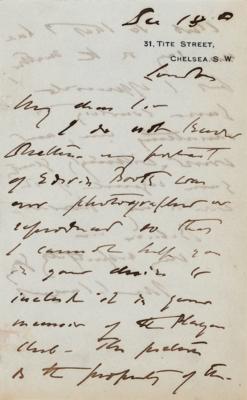 Dec 18
31, TITE STREET,
CHELSEA. S.W.
London
My dear Sir
I do not know
whether my portrait
of Edwin Booth was
ever photographed or
reproduced so that
I cannot help you
in your desire to
include it in your
memoir of the Players
Club - The picture
is the property of the